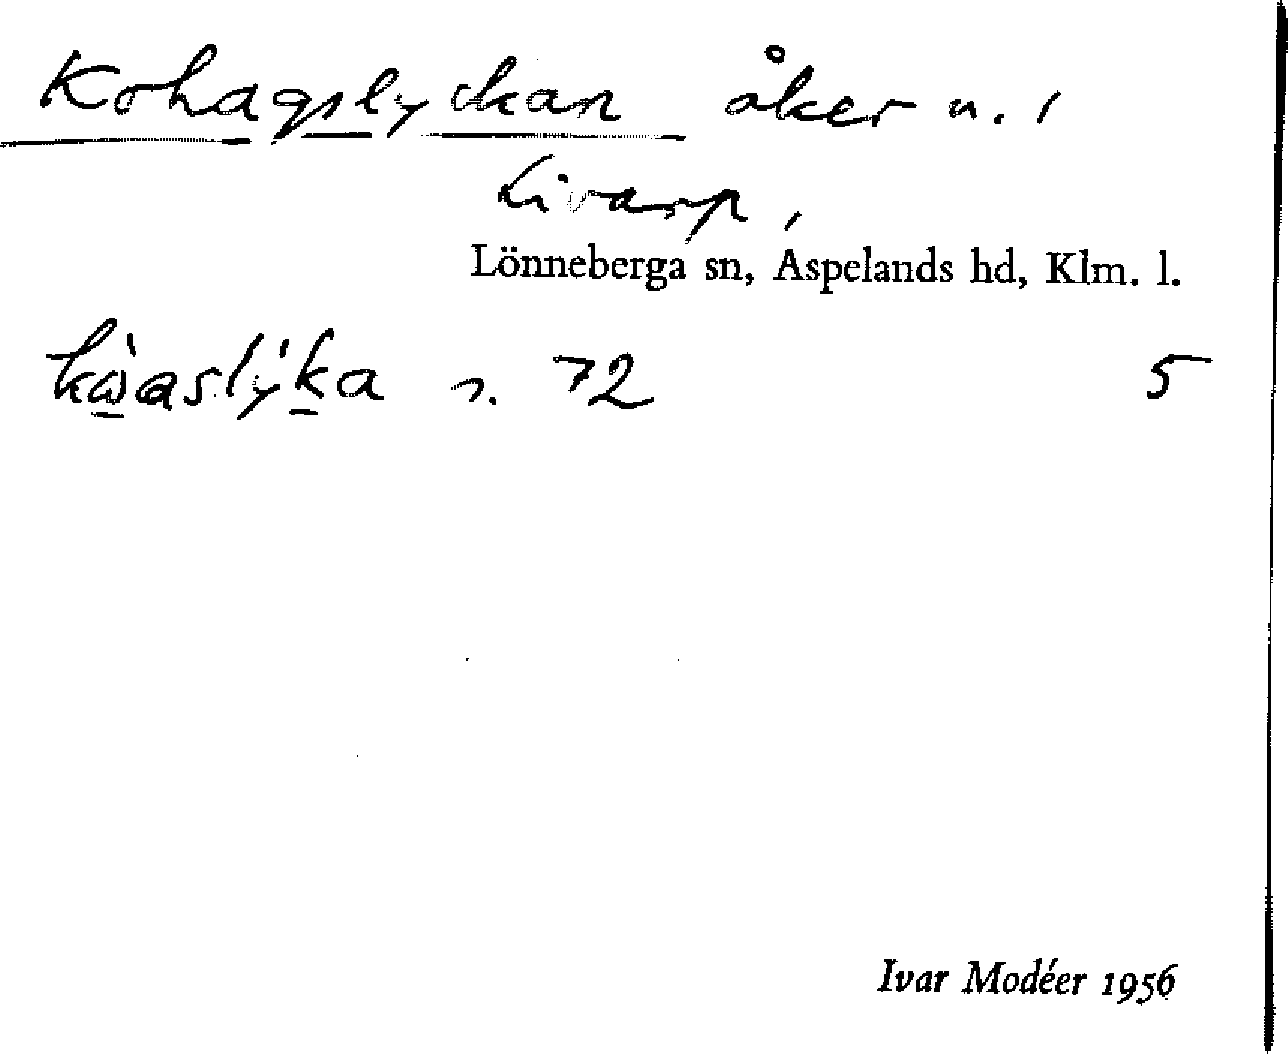 Kohagslyckan åker n. 1
Livarp,
Lönneberga sn, Aspelands hd, Klm. l.
s. 72 5
Ivar Modéer 1956